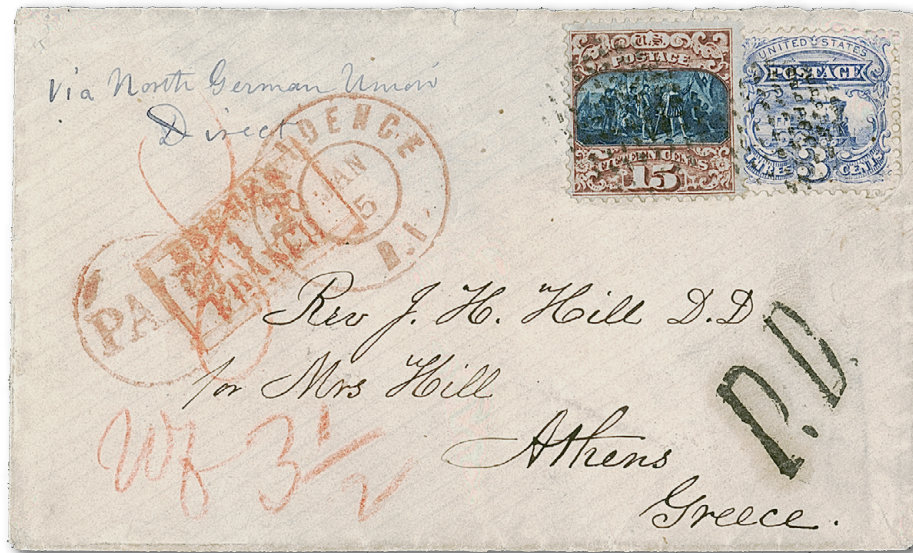 via North German Union
Direct
U.S.
POSTAGE
FIFTEEN CENTS
15
UNITED STATES
POSTAGE
3
CENTS
JAN
5
R.I.
FRANCO
PA
Rev J. H. Hill D.D
for Mrs Hill
Athens
Greece.
Wf 3 1/2
P.D.